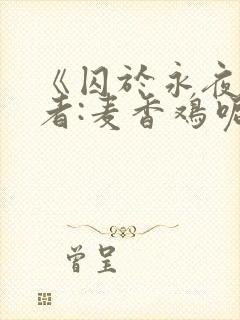 《囚於永夜
者:麦香鸡呢
曾呈